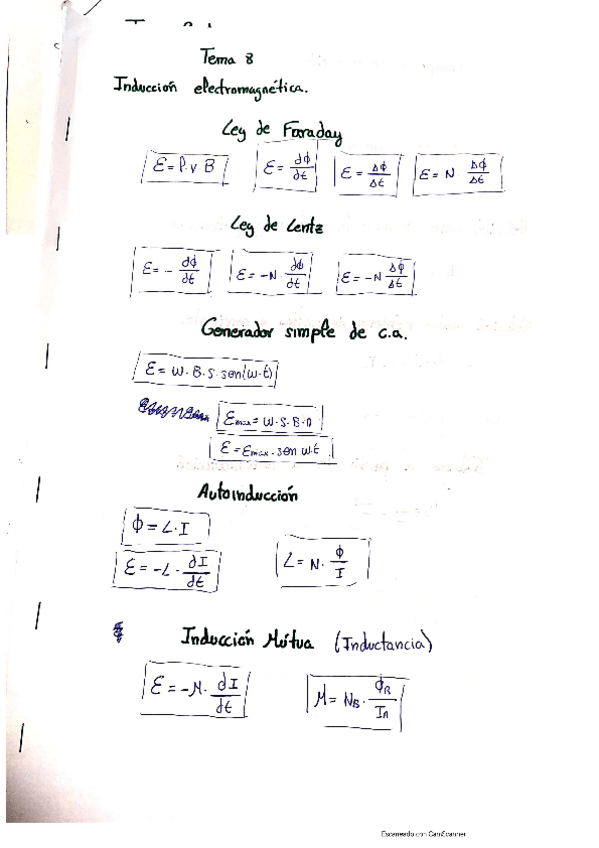 Tema 8
Inducción electromagnética.
Ley de Faraday
ε = l·v B   ε = dϕ/dt   ε = Δϕ/Δt   ε = N Δϕ/Δt
Ley de Lentz
ε = - dϕ/dt   ε = -N· dϕ/dt   ε = -N Δϕ/Δt
Generador simple de c.a.
ε = w·B·s·sen(w·t)
εmax = w·S·B·n
ε = εmax·sen w·t
Autoinducción
ϕ = L·I
ε = -L· dI/dt   L = N· ϕ/I
Inducción Mútua (Inductancia)
ε = -M· dI/dt   M = NB· ϕB/IA
Escaneado con CamScanner